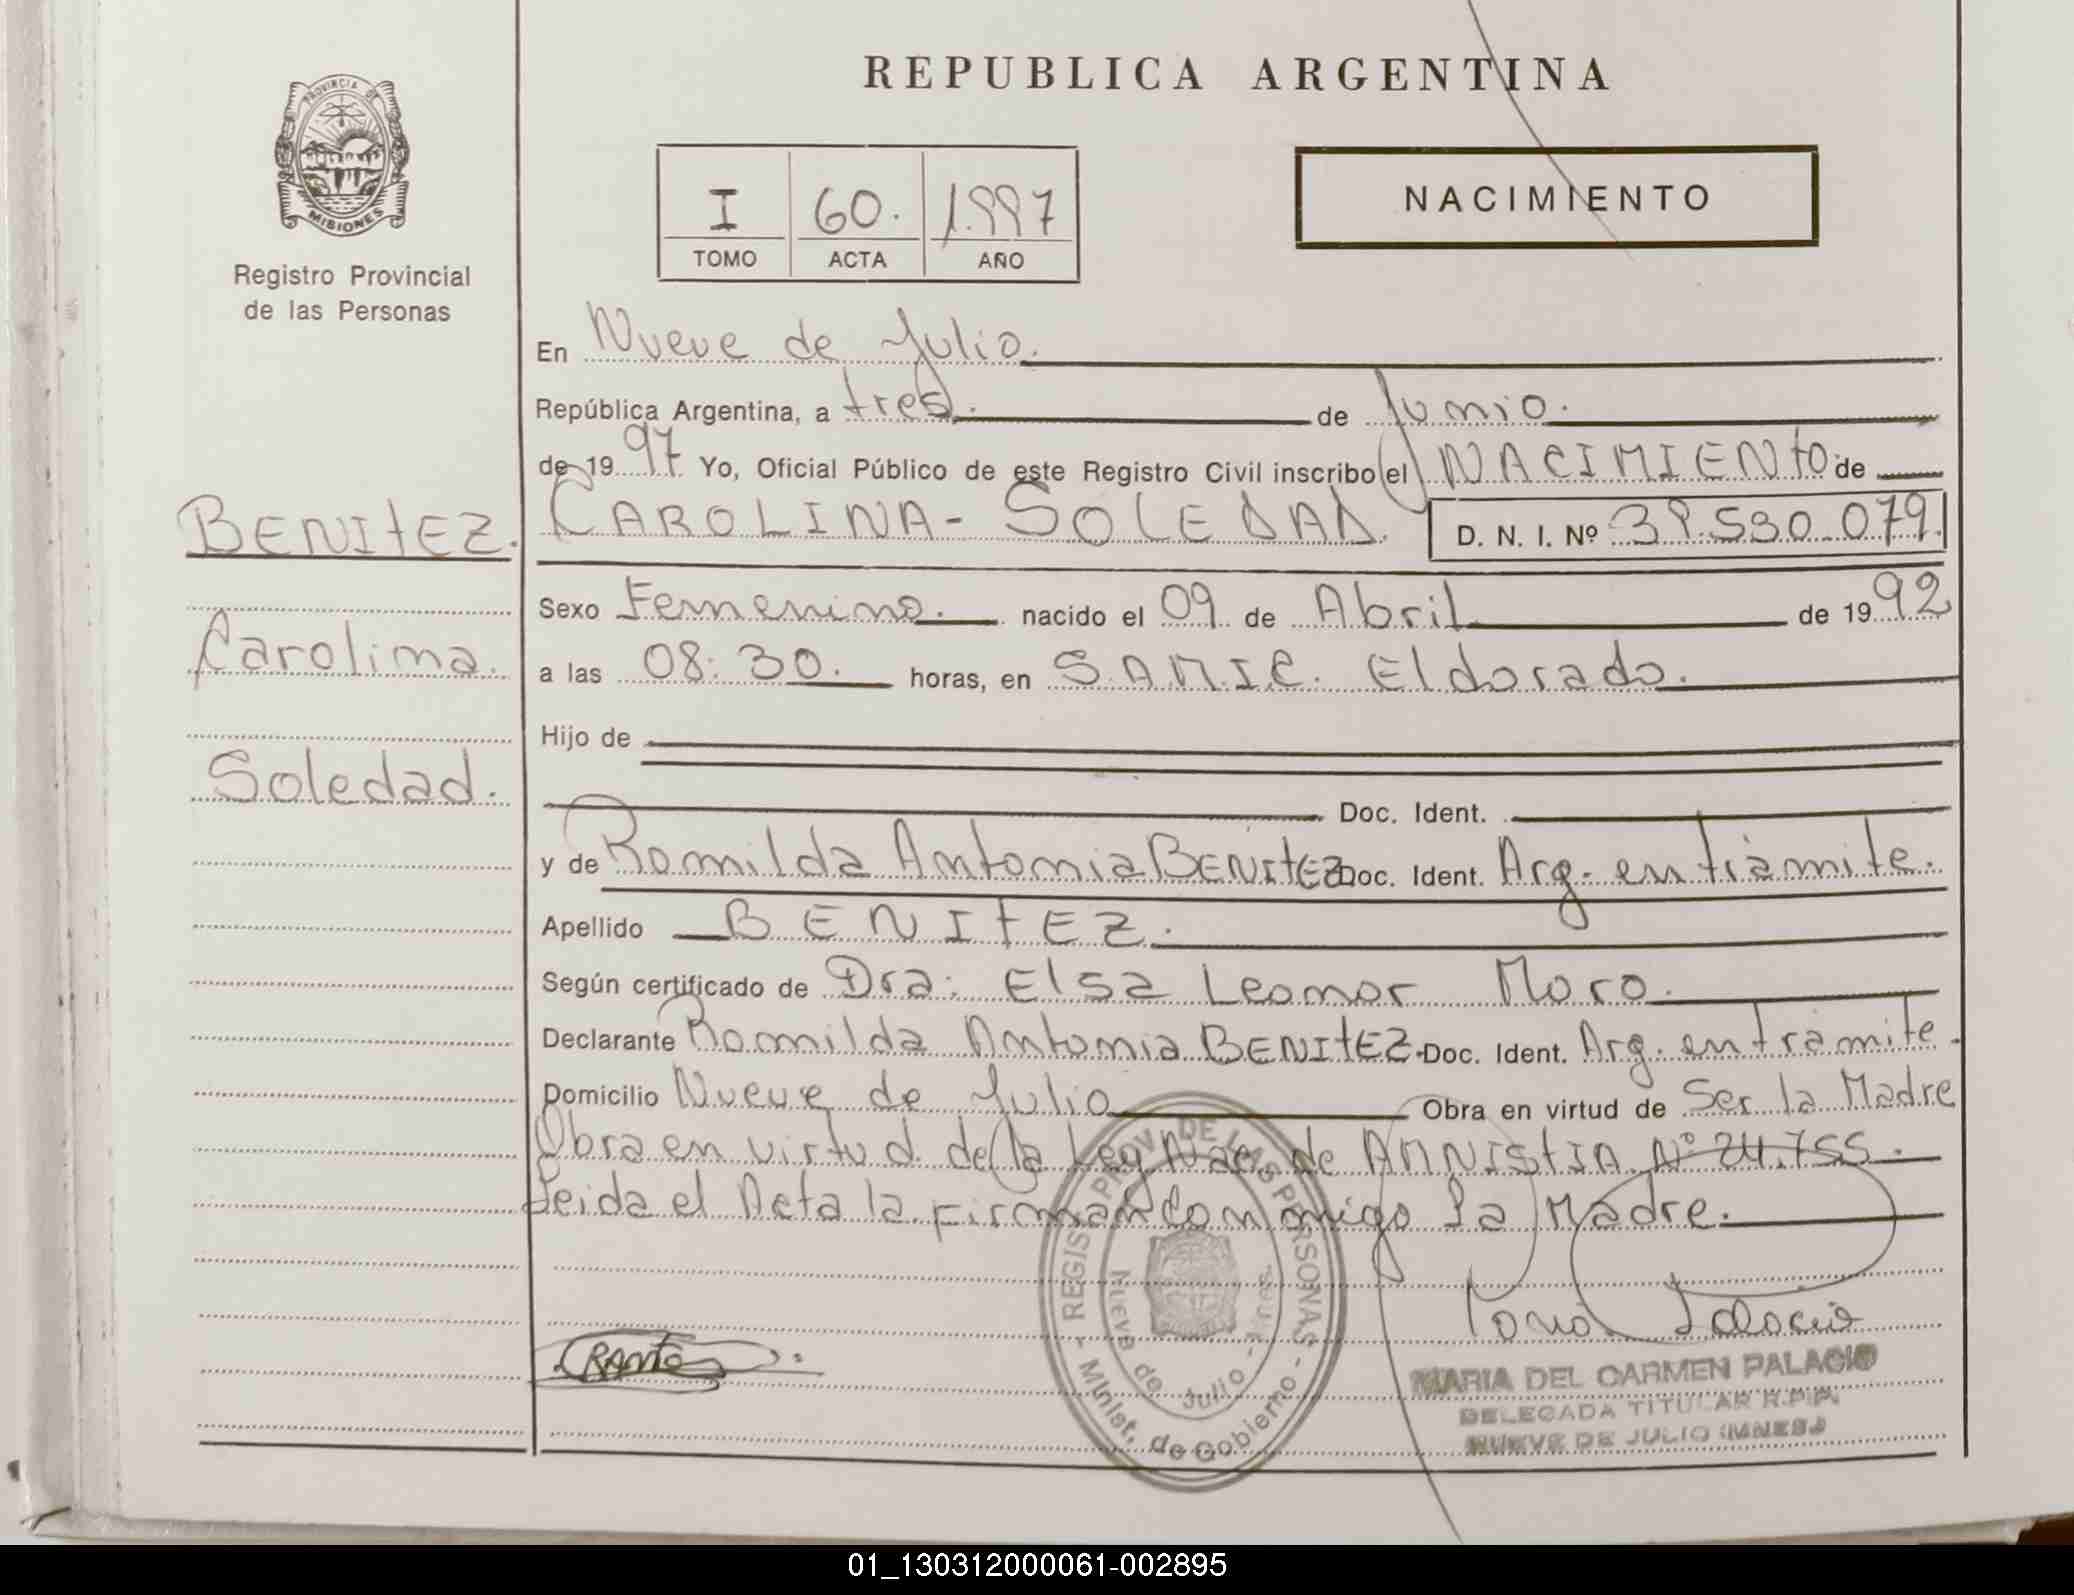 REPUBLICA ARGENTINA
PROVINCIA DE
MISIONES
Registro Provincial
de las Personas
I 60. 1.997
TOMO ACTA AÑO
NACIMIENTO
En Nueve de Julio.
República Argentina, a tres. de Junio.
de 19 97 Yo, Oficial Público de este Registro Civil inscribo el NACIMIENTO de
BENITEZ.
Carolina.
Soledad.
CAROLINA - SOLEDAD. D. N. I. Nº 39.530.079.
Sexo Femenino. nacido el 09 de Abril de 19 92
a las 08:30. horas, en S.A.M.I.C. Eldorado.
Hijo de
Doc. Ident.
y de Romilda Antonia BENITEZ Doc. Ident. Arg. en trámite.
Apellido BENITEZ.
Según certificado de Dra: Elsa Leonor Moro.
Declarante Romilda Antonia BENITEZ. Doc. Ident. Arg. en trámite.
Domicilio Nueve de Julio Obra en virtud de Ser la Madre
Obra en virtud de la Ley Nac. de AMNISTIA Nº 24.755.
Leida el Acta la firman conmigo la Madre.
REGIST. PROV. DE LAS PERSONAS - Minist. de Gobierno -
Nueve de Julio - Mnes.
MARIA DEL CARMEN PALACIO
DELEGADA TITULAR R.P.P.
NUEVE DE JULIO (MNES.)
01_130312000061-002895